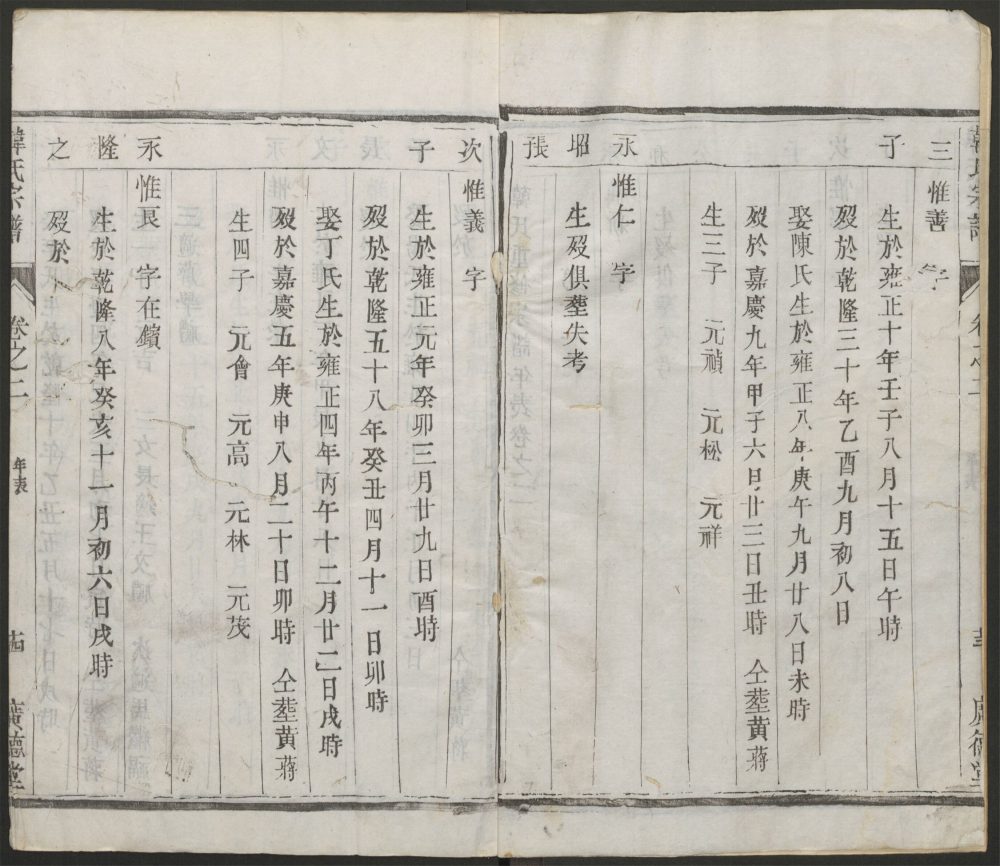 三 惟善 字
子
生於雍正十年壬子八月十五日午時
歿於乾隆三十年乙酉九月初八日
娶陳氏生於雍正八年庚午九月廿八日未時
歿於嘉慶九年甲子六日廿三日丑時 仝塟黄蔣
生三子 元禎 元松 元祥
永 惟仁 字
昭 生歿俱塟失考
張
次 惟義 字
子 生於雍正元年癸卯三月廿九日酉時
歿於乾隆五十八年癸丑四月十一日卯時
娶丁氏生於雍正四年丙午十二月廿二日戌時
歿於嘉慶五年庚申八月二十日卯時 仝塟黄蔣
生四子 元會 元高 元林 元茂
永 惟艮 字在鑌
隆 生於乾隆八年癸亥十一月初六日戌時
之 歿於
韓氏宗譜 卷之二 年表 廣德堂